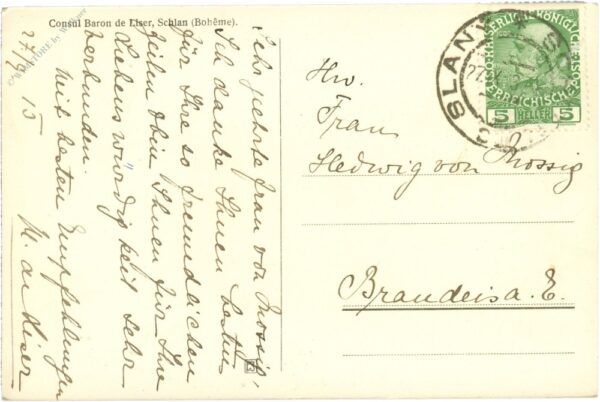 Consul Baron de Liser, Schlan (Bohême).
Sehr geehrte Frau von Mossig,
Ich danke Ihnen bestens
für Ihre so freundlichen
Zeilen bin Ihnen für Ihre
Liebenswürdigkeit sehr
verbunden.
Mit besten Empfehlungen
27/9 15
de Liser
Frau
Hedwig von Mossig
Brandeis a. E.
SLANÝ
5 HELLER 5